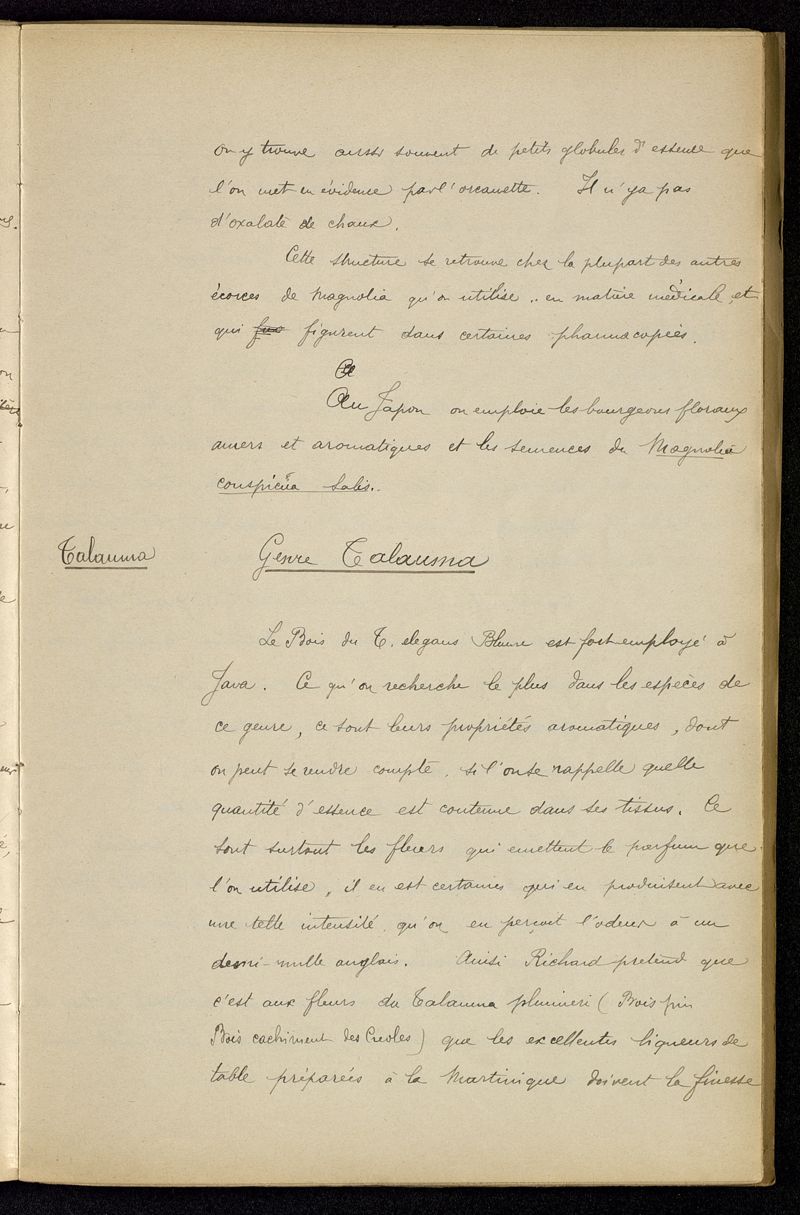 on y trouve aussi souvent de petits globules d'essence que
l'on met en évidence par l'orcanette. Il n'y a pas
d'oxalate de chaux.
Cette structure se retrouve chez la plupart des autres
écorces de Magnolia qu'on utilise en matière médicale, et
qui figurent dans certaines pharmacopées.
Au Japon on emploie les bourgeons floraux
amers et aromatiques et les semences du Magnolia
conspicua Salis.
Talauma
Genre Talauma
Le Bois du T. elegans Blume est fort employé à
Java. Ce qu'on recherche le plus dans les espèces de
ce genre, ce sont leurs propriétés aromatiques, dont
on peut se rendre compte, si l'on se rappelle quelle
quantité d'essence est contenue dans ses tissus. Ce
sont surtout les fleurs qui emettent le parfum que
l'on utilise, il en est certaines qui en produisent avec
une telle intensité, qu'on en perçoit l'odeur à un
demi-mille anglais. Ainsi Richard pretend que
c'est aux fleurs du Talauma plumieri (Bois pin
Bois cachiment des Creoles) que les excellentes liqueurs de
table préparées à la Martinique doivent la finesse